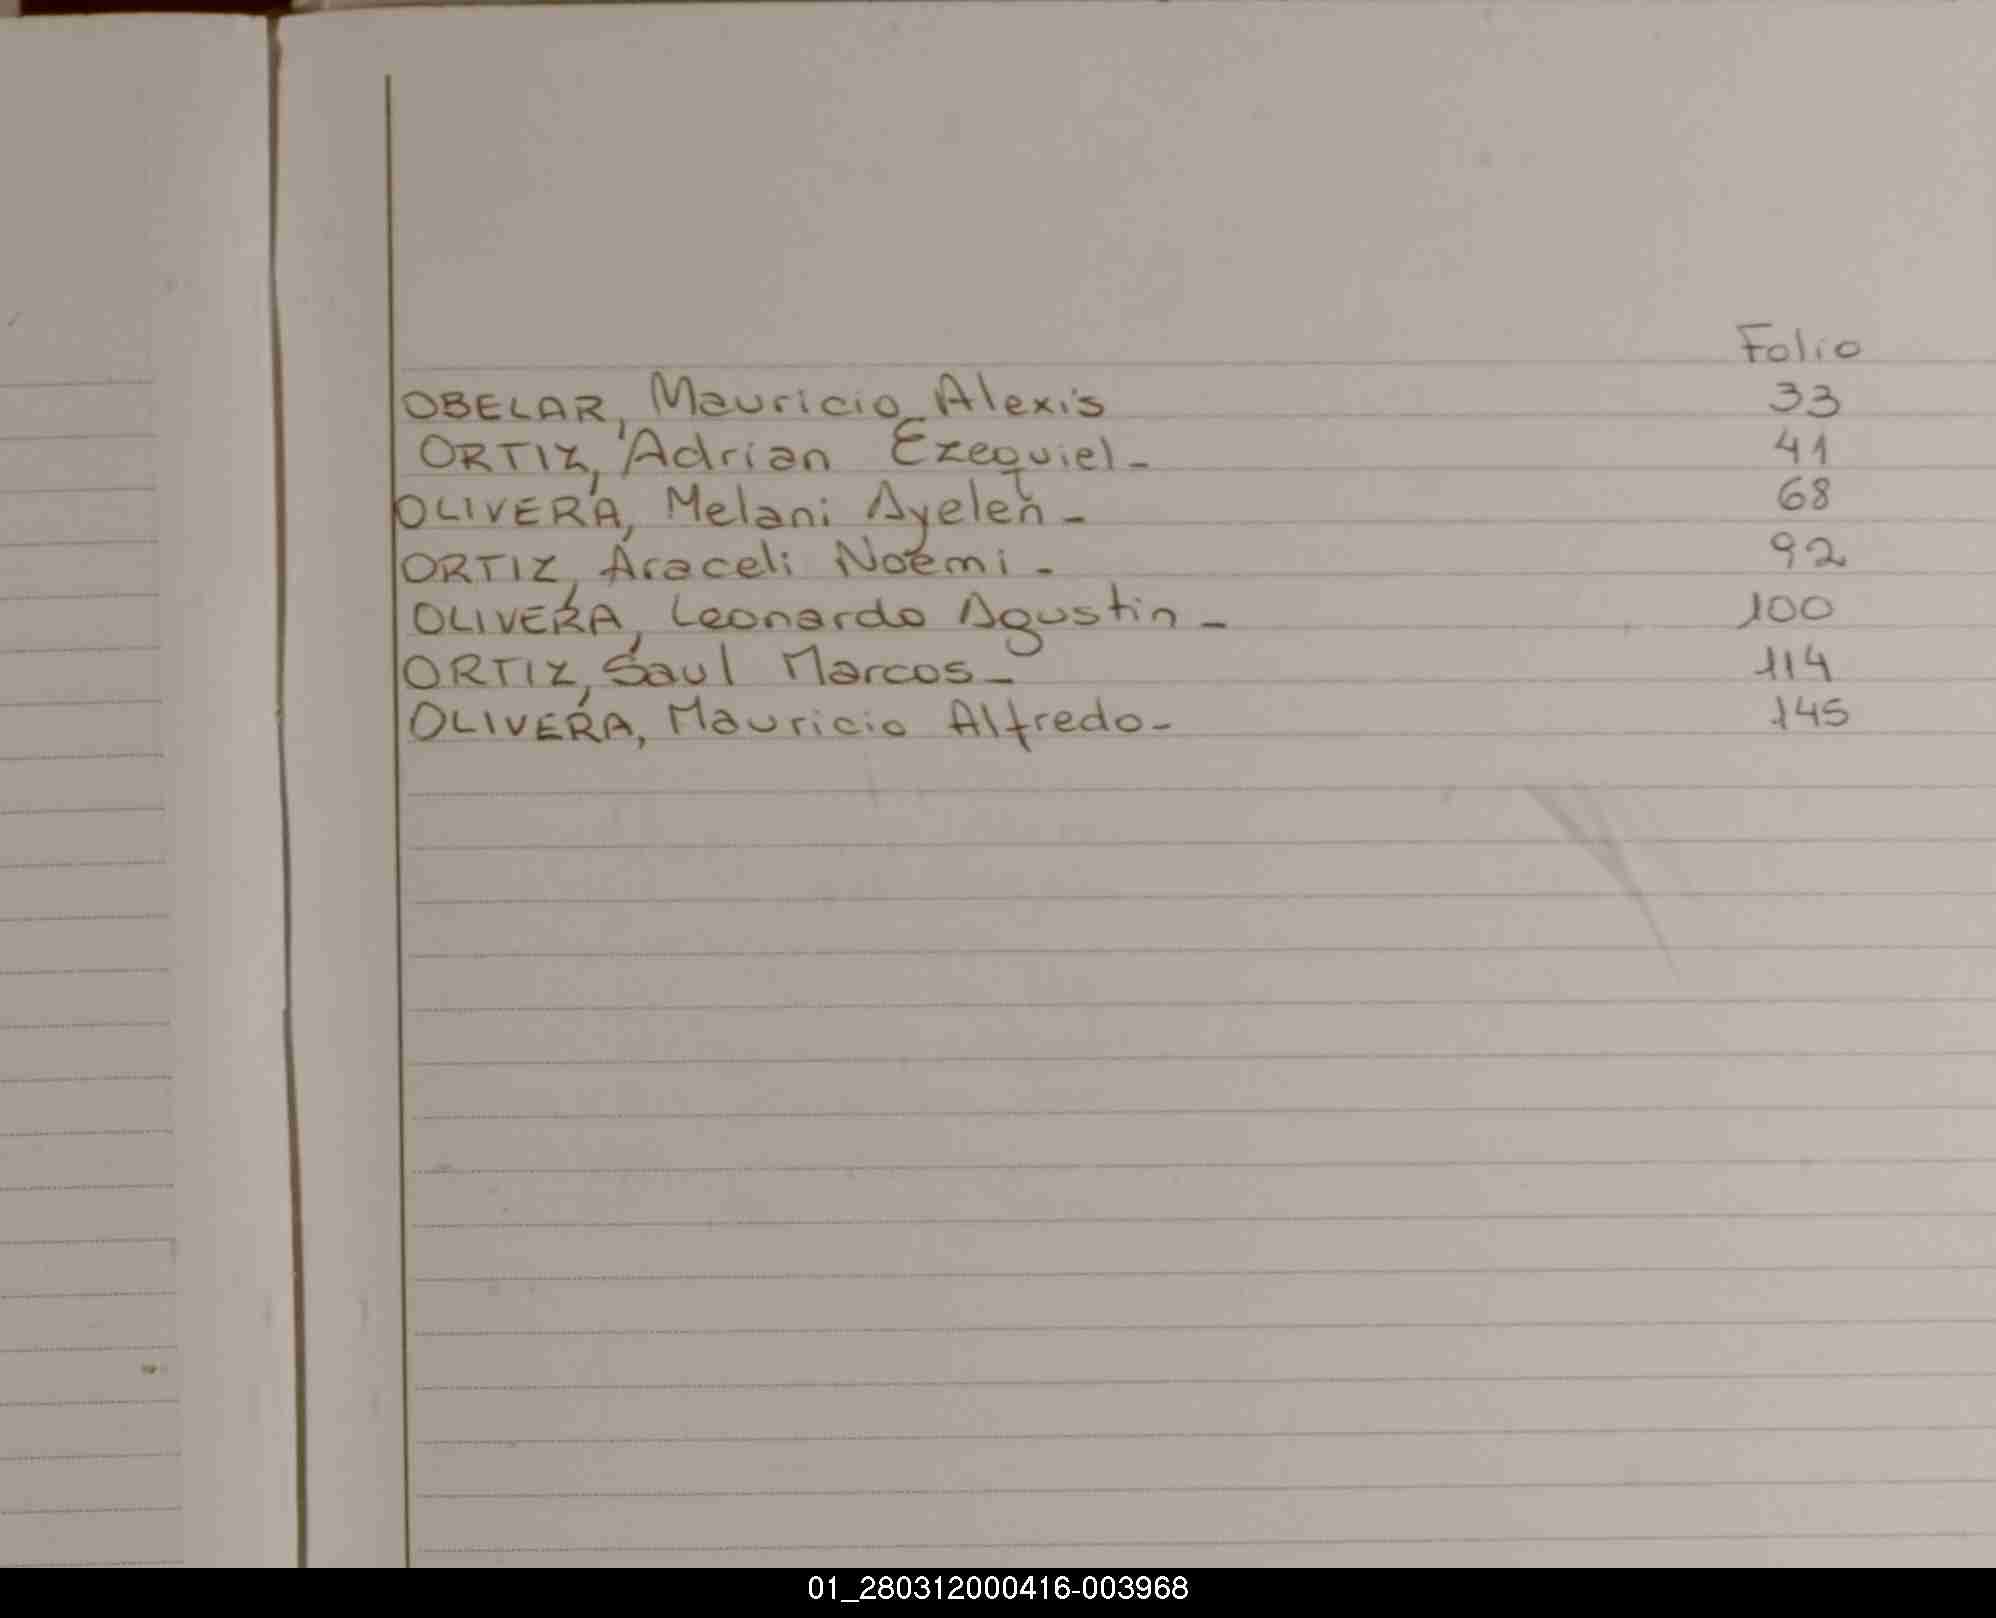 Folio
OBELAR, Mauricio Alexis 33
ORTIZ, Adrian Ezequiel- 41
OLIVERA, Melani Ayelen- 68
ORTIZ, Araceli Noemi- 92
OLIVERA, Leonardo Agustin- 100
ORTIZ, Saul Marcos- 114
OLIVERA, Mauricio Alfredo- 145
01_280312000416-003968